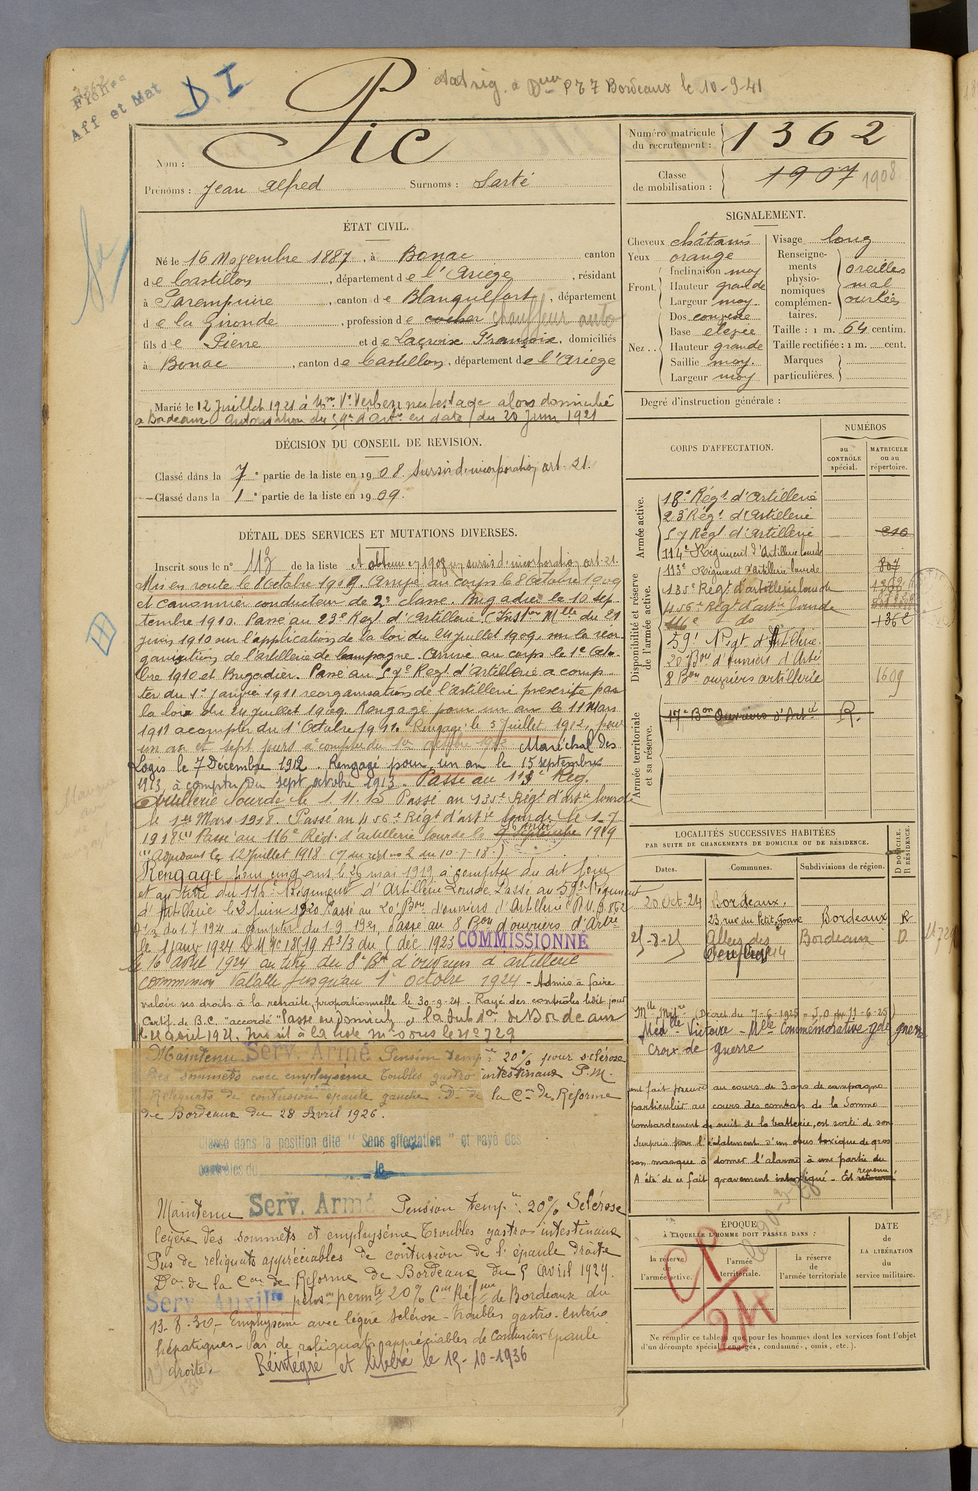 Aff et Mat
D I
le 10-9-41
Bordeaux
Nom : Pic
Prénoms : Jean Alfred Surnoms : Sarté
Numéro matricule du recrutement : 1362
Classe de mobilisation : 1907 1908
ÉTAT CIVIL.
Né le 16 Novembre 1887, à Bonac canton
de Castillon, département de l'Ariège, résidant
à Parempuire, canton de Blanquefort, département
de la Gironde, profession de cocher chauffeur auto
fils de Pierre et de Lacroix Françoise, domiciliés
à Bonac, canton de Castillon, département de l'Ariège
Marié le 12 Juillet 1921 à alors domicilié
à Bordeaux Autorisation du en date du 20 Juin 1921
DÉCISION DU CONSEIL DE REVISION.
Classé dans la 7e partie de la liste en 1908. Sursis d'incorporation art. 21.
Classé dans la 1e partie de la liste en 1909.
DÉTAIL DES SERVICES ET MUTATIONS DIVERSES.
Inscrit sous le n° 113 de la liste A obtenu en 1908 un sursis d'incorporation art. 21.
Mis en route le 8 Octobre 1909. Arrivé au corps le 8 Octobre 1909
et canonnier conducteur de 2e classe. Brigadier le 10 sep-
tembre 1910. Passé au 23e Régt d'Artillerie (Instion Mlle du 21
juin 1910 sur l'application de la loi du 24 juillet 1909 sur la réor-
ganisation de l'artillerie de campagne. Arrivé au corps le 1er Octo-
bre 1910 et Brigadier. Passé au 57e Régt d'Artillerie à comp-
ter du 1er janvier 1911 réorganisation de l'artillerie prescrite par
la loi du 24 juillet 1909. Rengagé pour un an le 11 Mars
1911 à compter du 1er Octobre 1911. Rengagé le 5 juillet 1912, pour
un an et sept jours à compter du 1er octobre 1912 Maréchal des
Logis le 7 Décembre 1912. Rengagé pour un an le 15 septembre
1913, à compter du sept octobre 1913. Passé au 113e Rég.
Artillerie Lourde le 1.11.15 Passé au 135e Régt d'artie lourde
le 1er Mars 1918. Passé au 456e Régt d'artie lourde le 1-7
1918 (1) Passé au 116e Régt d'artillerie lourde le 1919
(1) Adjudant le 12 juillet 1918
Rengagé pour cinq ans le 26 mai 1919 à compter du dit jour
et au titre du 116e Régiment d'Artillerie Lourde Passé au 59e Régiment
d'Artillerie le 2 juin 1920 Passé au 20e Bon d'ouvriers d'Artillerie
Passé au 8e Bon d'ouvriers d'Artie
le 1 janv 1924 COMMISSIONNÉ
le 16 avril 1924 au titre du 8e Bn d'ouvriers d'artillerie
commission valable jusqu'au 1er octobre 1924 - Admis à faire
valoir ses droits à la retraite proportionnelle le 30-9-24. Rayé des contrôles ledit jour
Certif. de B.C. "accordé" Passé en domicile à la Subon de Bordeaux
Maintenu Serv. Armé Pension temp. 20% pour sclérose
des sommets avec emphysème Troubles gastro-intestinaux P.M.
Reliquats de contusion épaule gauche. Don de la Con de Réforme
de Bordeaux du 28 Avril 1926.
Classé dans la position dite "Sans affectation" et rayé des
contrôles du le
Maintenu Serv. Armé Pension temp. 20% Sclérose
légère des sommets et emphysème Troubles gastro-intestinaux
Pas de reliquats appréciables de contusion de l'épaule droite
Don de la Con de Réforme de Bordeaux du 5 avril 1929.
Serv. Auxilre pension permte 20% Con Réfme de Bordeaux du
13-8-30. Emphysème avec légère sclérose - troubles gastro-entéro
hépatiques. Pas de reliquats appréciables de contusion épaule
droite. Réintégré et libéré le 15-10-1936
SIGNALEMENT.
Cheveux châtains
Yeux orange
Front. Inclinaison moy
Hauteur grande
Largeur moy.
Nez.. Dos convexe
Base élevée
Hauteur grande
Saillie moy.
Largeur moy
Visage long
Renseignements physionomiques complémentaires. oreilles mal ourlées
Taille : 1 m. 64 centim.
Taille rectifiée : 1 m. cent.
Marques particulières.
Degré d'instruction générale :
CORPS D'AFFECTATION.
NUMÉROS
au CONTRÔLE spécial.
MATRICULE ou au répertoire.
Armée active.
Disponibilité et réserve de l'armée active.
Armée territoriale et sa réserve.
18e Régt d'Artillerie
23e Régt d'Artillerie
57 Régt d'Artillerie
114e Régiment d'Artillerie lourde
113e Régiment d'artillerie lourde
135e Régt d'artillerie lourde
456e Régt d'artie lourde
116e do 1362
59e Régt d'Artillerie
20 Bon d'ouvriers d'Artie
8 Bon ouvriers artillerie 1609
17e Bon Ouvriers d'Artie R.
LOCALITÉS SUCCESSIVES HABITÉES
PAR SUITE DE CHANGEMENTS DE DOMICILE OU DE RÉSIDENCE.
Dates. Communes. Subdivisions de région. D DOMICILE. R RÉSIDENCE.
20 Oct. 24 Bordeaux,
23 rue du Petit Bordeaux R
25-8-25 Allées des Bordeaux D.
Mlle Mre (Décret du 7-6-1925 = J.O du 11-6-25)
Médlle Victoire - Mlle Commémorative gde guerre
Croix de guerre
ont fait preuve au cours de 3 ans de campagne
particulier au cours des combats de la Somme
bombardement de nuit de la batterie, est sorti de son
surpris par l'éclatement d'un obus toxique de gros
son masque à donner l'alarme à une partie du
A été de ce fait gravement intoxiqué - Est revenu
ÉPOQUE
À LAQUELLE L'HOMME DOIT PASSER DANS :
la réserve de l'armée active.
l'armée territoriale.
la réserve de l'armée territoriale
DATE de LA LIBÉRATION du service militaire.
CP
24
Ne remplir ce tableau que pour les hommes dont les services font l'objet
d'un décompte spécial (engagés, condamnés, omis, etc.).